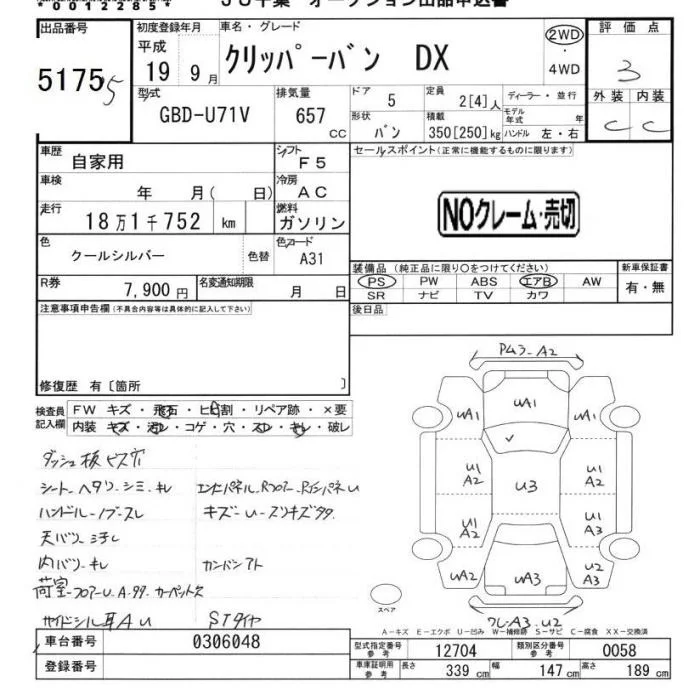 *00122851*
JU千葉 オークション出品申込書
出品番号
51755
初度登録年月
平成
19 9月
車名・グレード
クリッパーバン DX
2WD
・
4WD
評価点
3
外装 内装
C C
型式
GBD-U71V
排気量
657
CC
ドア
5
定員
2[4]人
ディーラー・並行
モデル年式 年
形状
バン
積載
350[250]kg
ハンドル 左・右
車歴
自家用
シフト
F5
セールスポイント(正常に機能するものに限ります)
車検
年 月( 日)
冷房
AC
NOクレーム・売切
走行
18万1千752 km
燃料
ガソリン
色
クールシルバー
色替
色コード
A31
装備品(純正品に限り○をつけてください)
新車保証書
PS PW ABS エアB AW
有・無
SR ナビ TV カワ
R券
7,900円
名変通知期限
月 日
注意事項申告欄(不具合内容等は具体的に記入して下さい)
後日品
修復歴 有〔箇所 〕
検査員
記入欄
FW キズ・飛石・ヒビ割・リペア跡・×要
内装 キズ・汚レ・コゲ・穴・スレ・キレ・破レ
ダッシュ板ビス穴
シートヘタリ・シミ・キレ
ハンドルノブースレ
キズーU
天バリーヨゴレ
内バリーキレ
荷室
ST タイヤ
A2
UA1
UA1 UA1
U1 A2
U3
U1 A2
U1 A2
U1 A3
UA2
UA3
U2 A3
A3 U2
スペア
A-キズ E-エクボ U-凹み W-補修跡 S-サビ C-腐食 XX-交換済
車台番号
0306048
登録番号
型式指定番号
参考
12704
類別区分番号
参考
0058
車庫証明用
参考
長さ
339 cm
幅
147 cm
高さ
189 cm